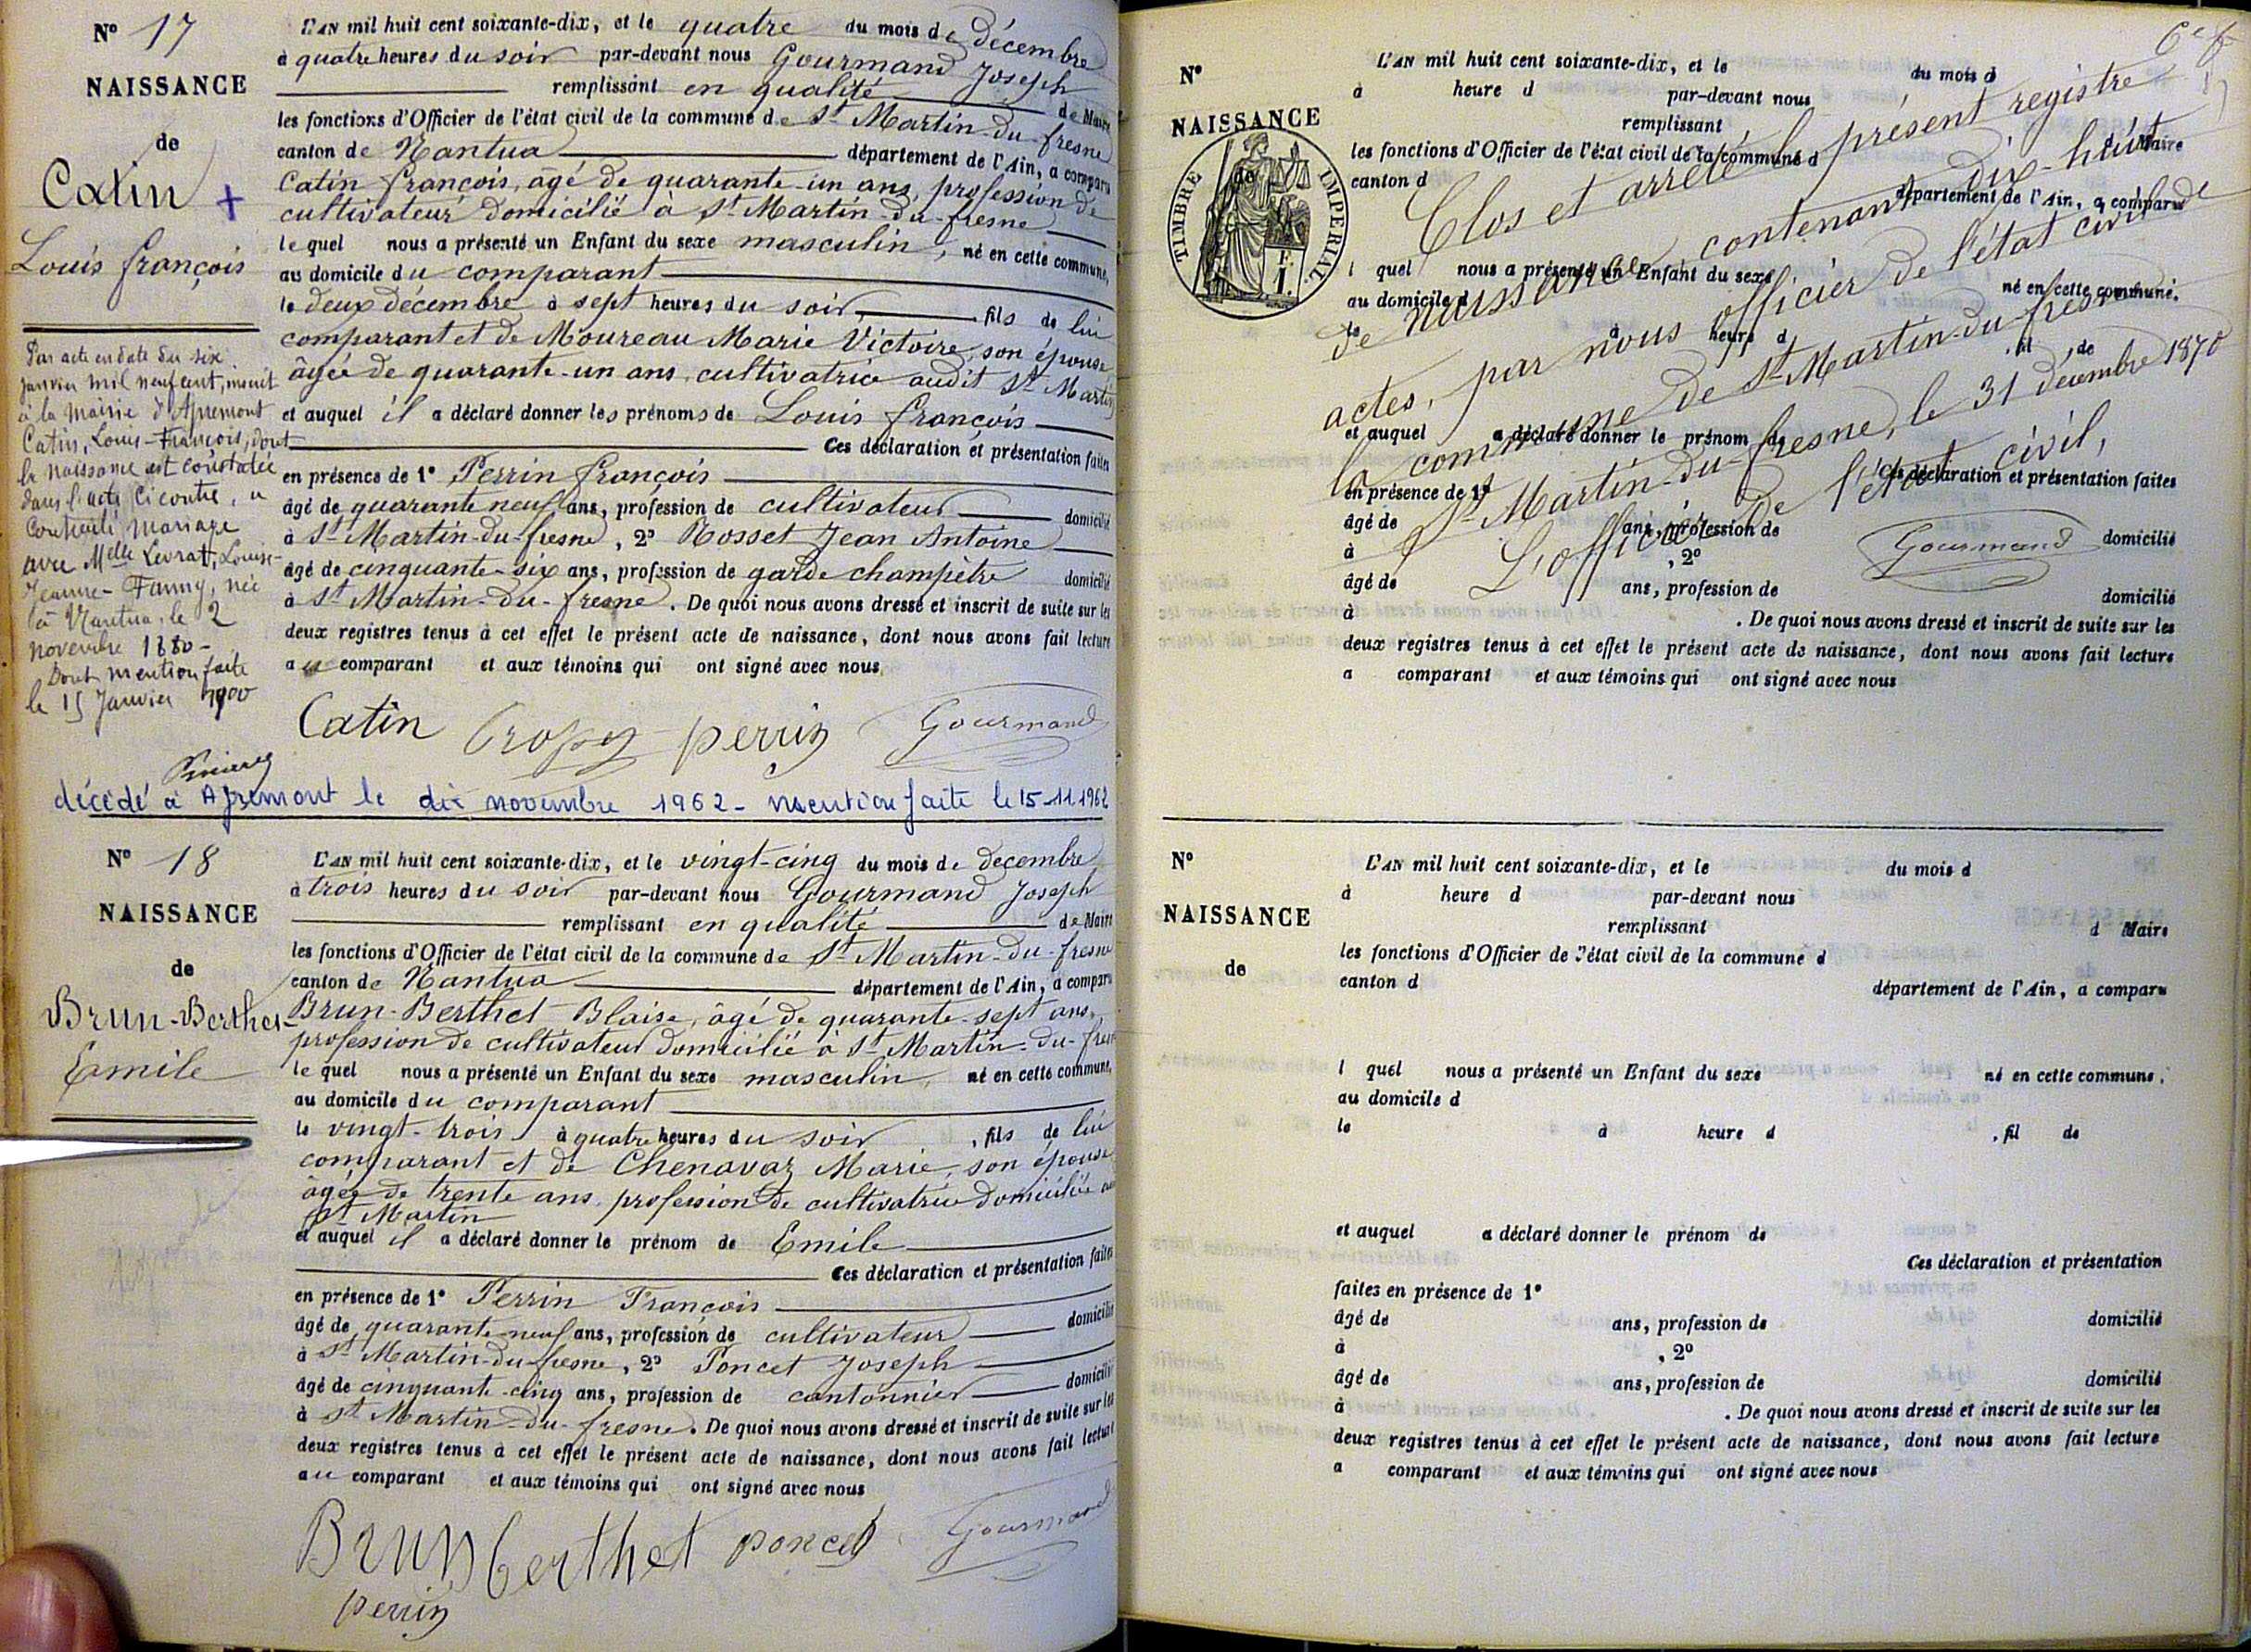 Nº 17
NAISSANCE
de
Catin +
Louis françois
L'AN mil huit cent soixante-dix, et le quatre du mois de décembre
à quatre heures du soir par-devant nous Gourmand Joseph
remplissant en qualité de Maire
les fonctions d'Officier de l'état civil de la commune de St Martin-du-fresne
canton de Nantua département de l'Ain, a comparu
Catin françois, âgé de quarante-un ans, profession de
cultivateur domicilié à St Martin-du-fresne
lequel nous a présenté un Enfant du sexe masculin, né en cette commune,
au domicile du comparant
le deux décembre à sept heures du soir, fils de lui
comparant et de Moureau Marie Victoire, son épouse
âgée de quarante-un ans, cultivatrice audit St Martin
et auquel il a déclaré donner les prénoms de Louis françois
Ces déclaration et présentation faites
en présence de 1º Perrin françois
âgé de quarante neuf ans, profession de cultivateur domicilié
à St Martin-du-fresne, 2º Rosset Jean Antoine
âgé de cinquante-six ans, profession de garde champêtre domicilié
à St Martin-du-fresne. De quoi nous avons dressé et inscrit de suite sur les
deux registres tenus à cet effet le présent acte de naissance, dont nous avons fait lecture
au comparant et aux témoins qui ont signé avec nous
Catin perrin Gourmand
Par acte en date du six
janvier mil neuf cent, inscrit
à la Mairie d'Apremont
Catin, Louis-François, dont
la naissance est constatée
dans l'acte ci contre, a
contracté mariage
avec Melle Levrat, Louise-
Jeanne-Fanny, née
à Nantua, le 2
novembre 1880-
Dont mention faite
le 15 Janvier 1900
décédé à Apremont le dix novembre 1962 - mention faite le 15-11-1962
Nº 18
NAISSANCE
de
Brun-Berthet
Emile
L'AN mil huit cent soixante-dix, et le vingt-cinq du mois de decembre
à trois heures du soir par-devant nous Gourmand Joseph
remplissant en qualité de Maire
les fonctions d'Officier de l'état civil de la commune de St Martin-du-fresne
canton de Nantua département de l'Ain, a comparu
Brun-Berthet Blaise, âgé de quarante-sept ans,
profession de cultivateur domicilié à St Martin-du-fresne
lequel nous a présenté un Enfant du sexe masculin, né en cette commune,
au domicile du comparant
le vingt-trois à quatre heures du soir, fils de lui
comparant et de Chenavaz Marie, son épouse
âgée de trente ans profession de cultivatrice domiciliée au
St Martin
et auquel il a déclaré donner le prénom de Emile
Ces déclaration et présentation faites
en présence de 1º Perrin François
âgé de quarante neuf ans, profession de cultivateur domicilié
à St Martin-du-fresne, 2º Poncet Joseph
âgé de cinquante-cinq ans, profession de cantonnier domicilié
à St Martin-du-fresne. De quoi nous avons dressé et inscrit de suite sur les
deux registres tenus à cet effet le présent acte de naissance, dont nous avons fait lecture
au comparant et aux témoins qui ont signé avec nous
Brun berthet poncet Gourmand
perrin
Nº
NAISSANCE
de
TIMBRE IMPERIAL
F.
1.
L'AN mil huit cent soixante-dix, et le du mois d
à heure d par-devant nous
remplissant d Maire
les fonctions d'Officier de l'état civil de la commune d
canton d département de l'Ain, a comparu
l quel nous a présenté un Enfant du sexe né en cette commune.
au domicile d
le à heure d , fil de
et auquel a déclaré donner le prénom de
Ces déclaration et présentation faites
en présence de 1º
âgé de ans, profession de domicilié
à , 2º
âgé de ans, profession de domicilié
à . De quoi nous avons dressé et inscrit de suite sur les
deux registres tenus à cet effet le présent acte de naissance, dont nous avons fait lecture
a comparant et aux témoins qui ont signé avec nous
Clos et arrêté le présent registre
de naissance contenant dix-huit
actes, par nous officier de l'état civil de
la commune de St Martin-du-fresne
St Martin-du-fresne, le 31 décembre 1870
L'officier de l'état civil,
Gourmand
Nº
NAISSANCE
de
L'AN mil huit cent soixante-dix, et le du mois d
à heure d par-devant nous
remplissant d Maire
les fonctions d'Officier de l'état civil de la commune d
canton d département de l'Ain, a comparu
l quel nous a présenté un Enfant du sexe né en cette commune,
au domicile d
le à heure d , fil de
et auquel a déclaré donner le prénom de
Ces déclaration et présentation
faites en présence de 1º
âgé de ans, profession de domicilié
à , 2º
âgé de ans, profession de domicilié
à . De quoi nous avons dressé et inscrit de suite sur les
deux registres tenus à cet effet le présent acte de naissance, dont nous avons fait lecture
a comparant et aux témoins qui ont signé avec nous